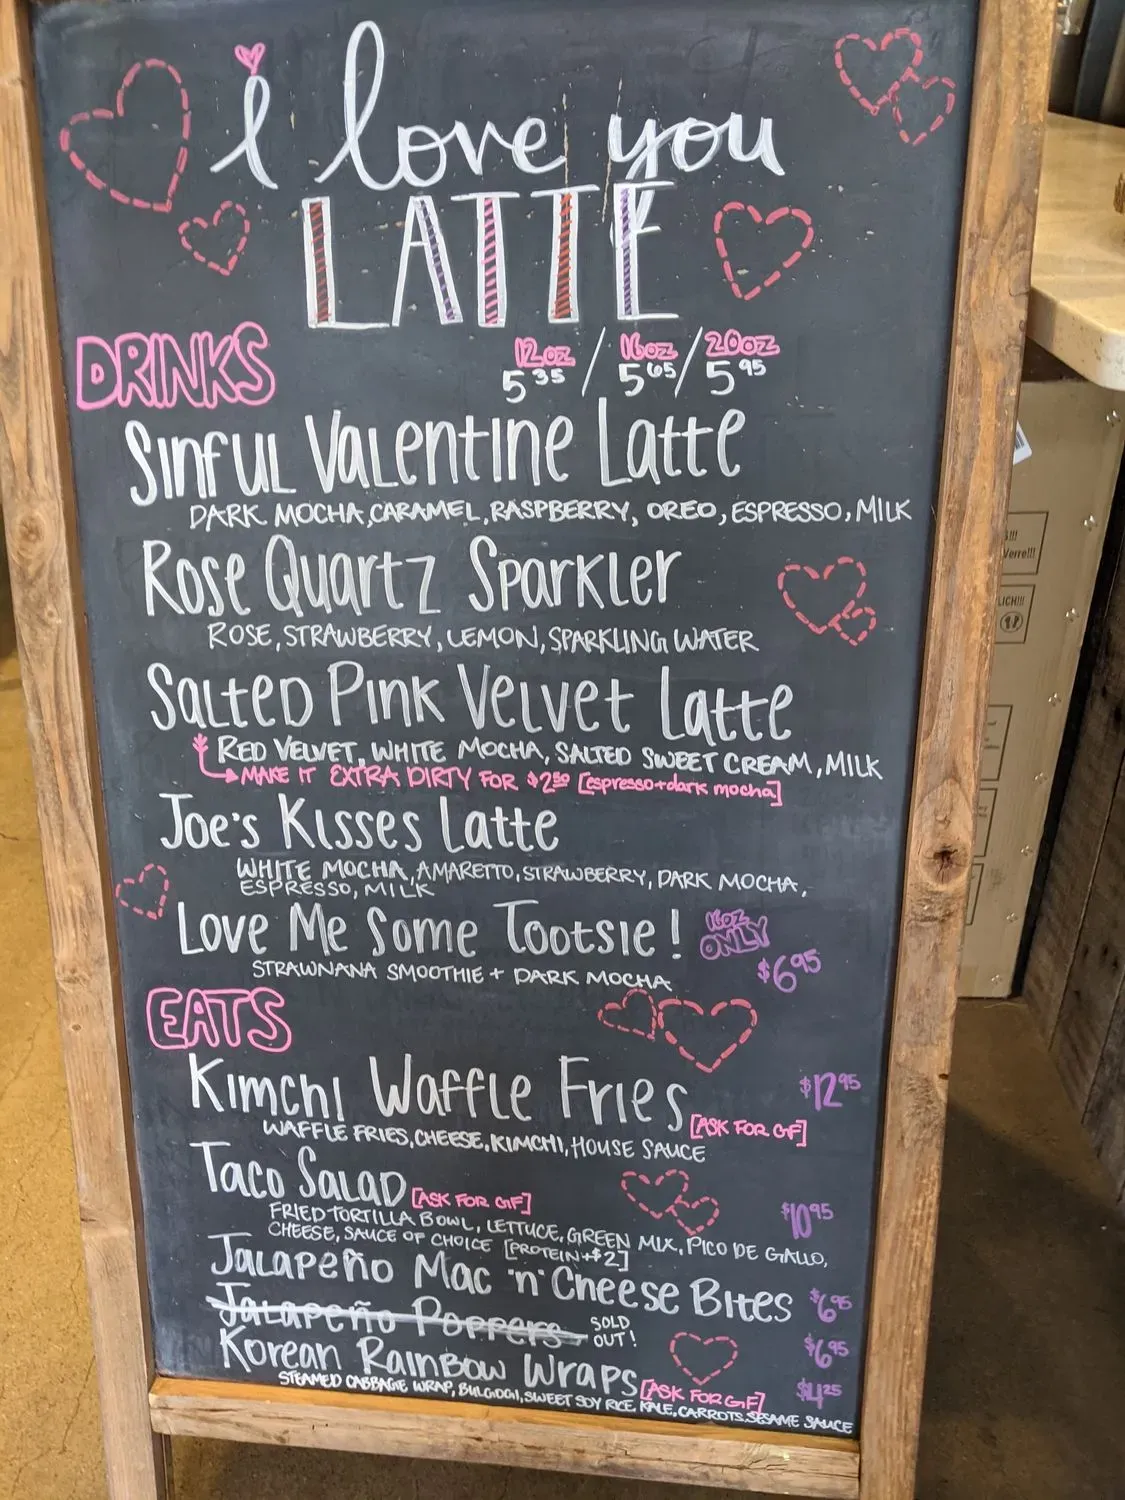 i love you
LATTE
DRINKS 12oz / 16oz / 20oz
5 35 / 5 65 / 5 95
SINFUL VALENTINE LATTE
DARK MOCHA, CARAMEL, RASPBERRY, OREO, ESPRESSO, MILK
ROSE QUARTZ SPARKLER
ROSE, STRAWBERRY, LEMON, SPARKLING WATER
SALTED PINK VELVET LATTE
RED VELVET, WHITE MOCHA, SALTED SWEET CREAM, MILK
MAKE IT EXTRA DIRTY FOR $2.50 [espresso+dark mocha]
JOE'S KISSES LATTE
WHITE MOCHA, AMARETTO, STRAWBERRY, DARK MOCHA,
ESPRESSO, MILK
LOVE ME SOME TOOTSIE! 16oz ONLY
$6 95
STRAWNANA SMOOTHIE + DARK MOCHA
EATS
KIMCHI WAFFLE FRIES [ASK FOR GF] $12 95
WAFFLE FRIES, CHEESE, KIMCHI, HOUSE SAUCE
TACO SALAD [ASK FOR GF] $10 95
FRIED TORTILLA BOWL, LETTUCE, GREEN MIX, PICO DE GALLO,
CHEESE, SAUCE OF CHOICE [PROTEIN +$2]
JALAPEÑO MAC 'N' CHEESE BITES $6 95
JALAPEÑO POPPERS SOLD OUT! $6 95
KOREAN RAINBOW WRAPS [ASK FOR GF] $4 25
STEAMED CABBAGE WRAP, BULGOGI, SWEET SOY RICE, KALE, CARROTS, SESAME SAUCE
Verre!!!
LICH!!!